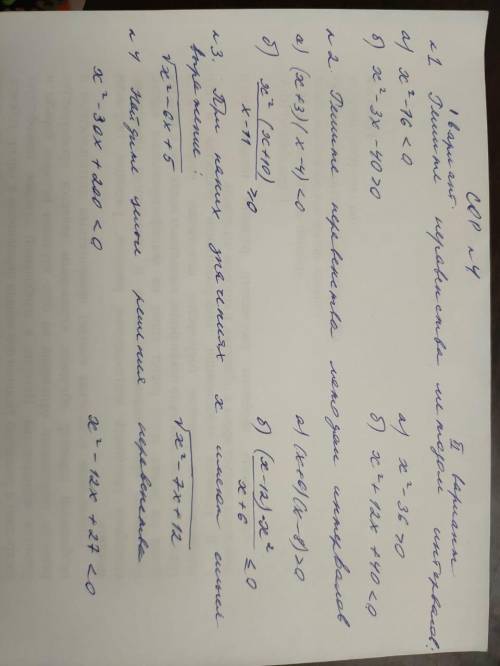 СОР № 4
I вариант. II вариант
№ 1 Решите неравенства методом интервалов:
а) x² - 16 < 0 а) x² - 36 > 0
б) x² - 3x - 40 > 0 б) x² + 12x + 40 < 0
№ 2. Решите неравенства методом интервалов
а) (x+3)(x-4) < 0 а) (x+6)(x-8) > 0
б) x²(x+10) / x-11 ≥ 0 б) (x-12)·x² / x+6 ≤ 0
№ 3. При каких значениях x имеет смысл
выражение:
√x² - 6x + 5 √x² - 7x + 12
№ 4 Найдите целые решения неравенства
x² - 30x + 200 < 0 x² - 12x + 27 < 0